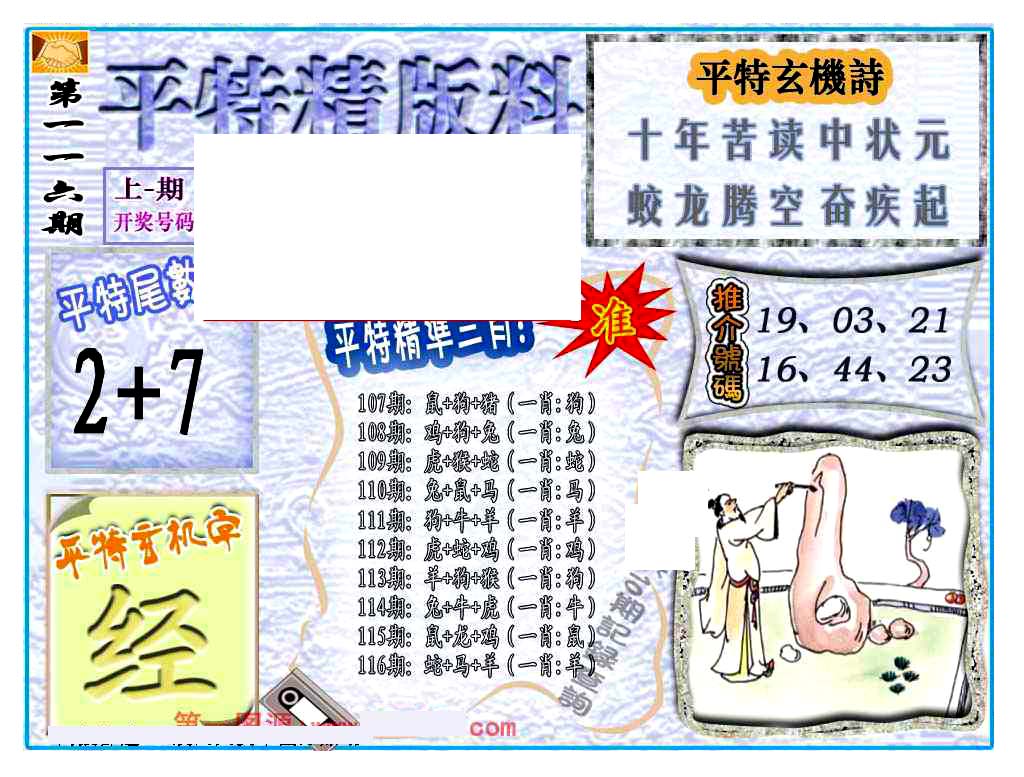 第一一六期
平特精版料
上-期
开奖号码
平特玄機詩
十年苦读中状元
蛟龙腾空奋疾起
平特尾數
2+7
平特精準三肖!
准
推介號碼
19、03、21
16、44、23
107期: 鼠+狗+猪 (一肖:狗)
108期: 鸡+狗+兔 (一肖:兔)
109期: 虎+猴+蛇 (一肖:蛇)
110期: 兔+鼠+马 (一肖:马)
111期: 狗+牛+羊 (一肖:羊)
112期: 虎+蛇+鸡 (一肖:鸡)
113期: 羊+狗+猴 (一肖:狗)
114期: 兔+牛+虎 (一肖:牛)
115期: 鼠+龙+鸡 (一肖:鼠)
116期: 蛇+马+羊 (一肖:羊)
期記録查詢
平特玄机字
经
com